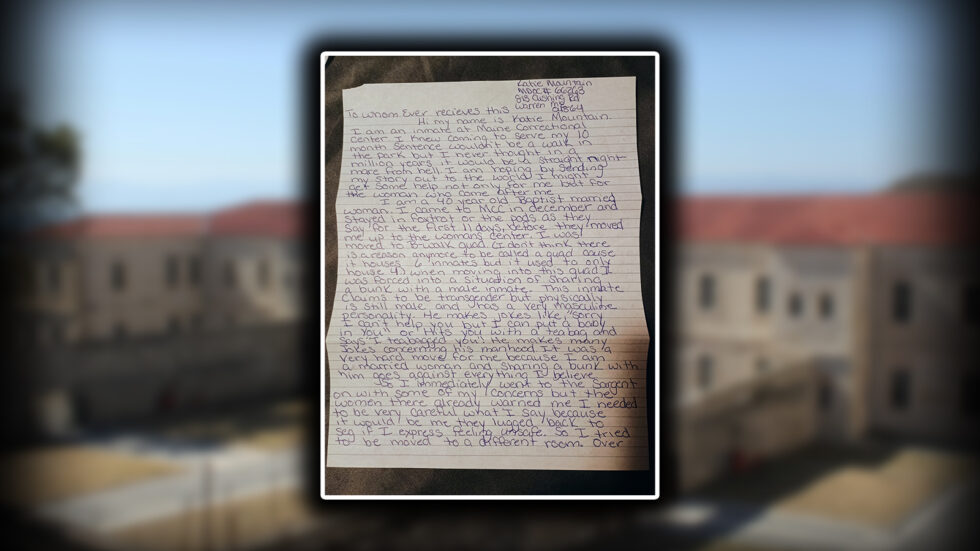 Katie Mountain
MDOC# 66263
Cushing Rd
Warren
04864
To whom Ever recieves this
Hi my name is Katie Mountain.
I am an inmate at Maine Correctional
center I knew coming to serve my 10
month sentence wouldn't be a walk in
the park but I never thought in a
million years it would be a straight night-
mare from hell. I am hoping by sending
my story out to the world I might
get some help not only for me but for
the woman who come after me
I am a 40 year old Baptist married
woman. I came to MCC in december and
stayed in foxtrot or the pods as they
say for the first 11 days, before they moved
me up to the womans center. I was
moved to B walk quad (I don't think there
is a reason anymore to be called a quad cause
it houses 6 inmates but it used to only
house 4) when moving into this quad I
was forced into a situation of sharing
a bunk with a male inmate. This inmate
claims to be transgender but physically
is still male and has a very masculine
personality. He makes jokes like, "sorry
I can't help you but I can put a baby
in you" or Hits you with a teabag and
says "I teabagged you! He makes many
jokes concerning his manhood It was a
very hard move for me because I am
a married woman and sharing a bunk with
him goes against everything I believe
So I immediately went to the Sargent
on with some of my concerns but the
women there already warned me I needed
to be very careful what I say because
it would be me they lugged back to
seg if I express feeling unsafe. So I tried
to be moved to a different room. Over